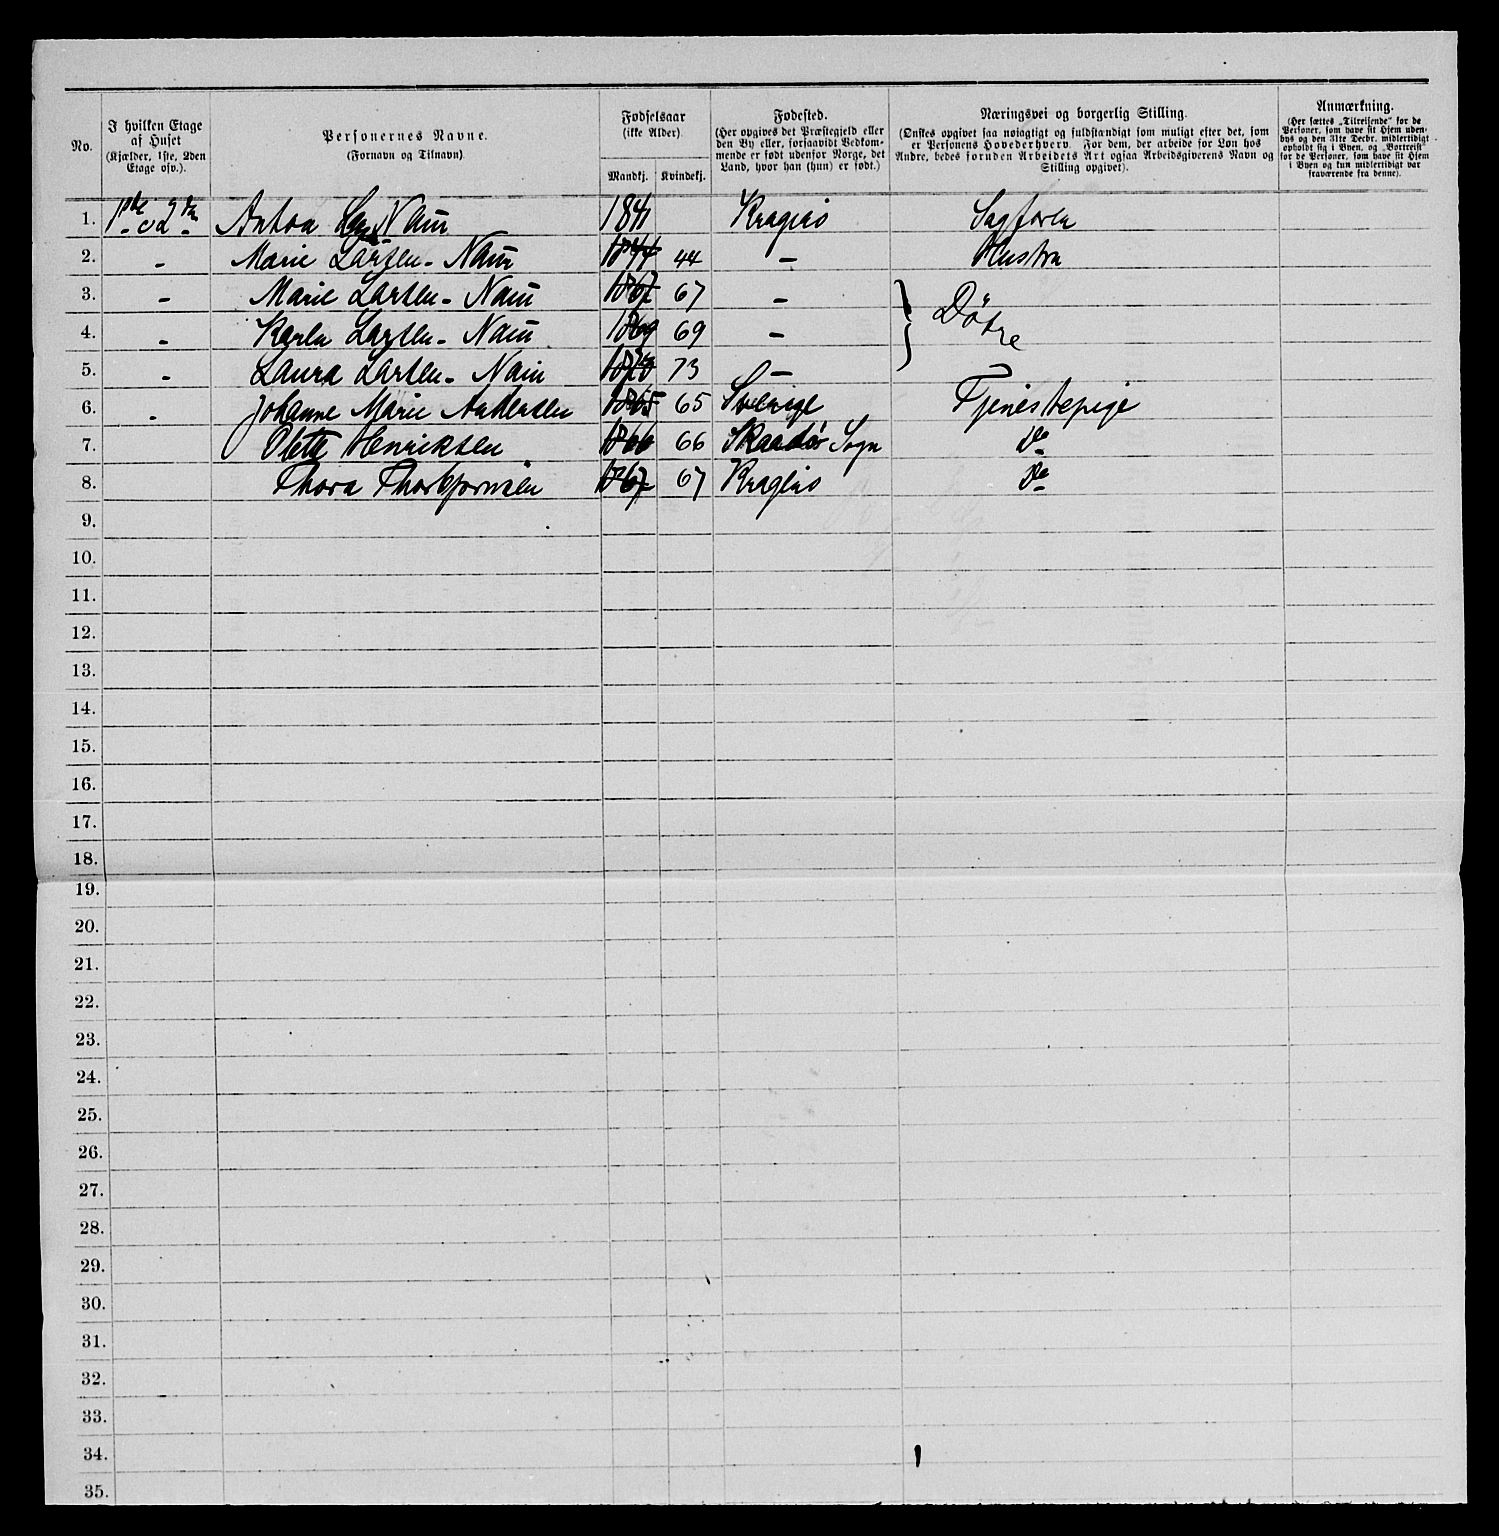 No.
I hvilken Etage af Huset (Kjælder, 1ste, 2den Etage osv.).
Personernes Navne.
(Fornavn og Tilnavn)
Fødselsaar
(ikke Alder)
Mandkj. Kvindekj.
Fødested.
(Her opgives det Præstegjeld eller
den By eller, forsaavidt Vedkom-
mende er født udenfor Norge, det
Land, hvor han (hun) er født.)
Næringsvei og borgerlig Stilling.
(Ønskes opgivet saa nøiagtigt og fuldstændigt som muligt efter det, som
er Personens Hovederhverv. For dem, der arbeide for Løn hos
Andre, bedes foruden Arbeidets Art ogsaa Arbeidsgiverens Navn og
Stilling opgivet).
Anmærkning.
(Her sættes „Tilreisende“ for de
Personer, som have sit Hjem uden-
bys og den 31te Decbr. midlertidigt
opholdt sig i Byen, og „Bortreist“
for de Personer, som have sit Hjem
i Byen og kun midlertidigt var
fraværende fra denne).
1. Anton Nain 1841 Kragerø Sagfører
2. - Marie Larsen - Nain 1844 44 - Hustru
3. - Marie Larsen - Nain 1867 67 - } Døtre
4. - Karla Larsen - Nain 1869 69 -
5. - Laura Larsen - Nain 1873 73 -
6. - Johanne Marie Andersen 1865 65 Sverige Tjenestepige
7. Henriksen 1866 66 Sogn Do
8. Thora Thorbjørnsen 1867 67 Kragerø Do
9.
10.
11.
12.
13.
14.
15.
16.
17.
18.
19.
20.
21.
22.
23.
24.
25.
26.
27.
28.
29.
30.
31.
32.
33.
34.
35.